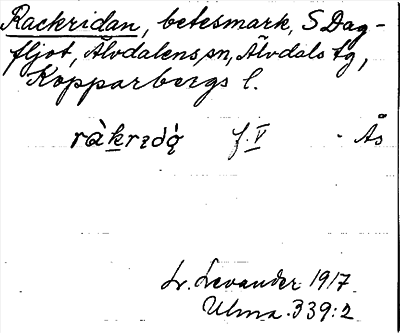 Rackridan, betesmark, S Dag-
fljot, Älvdalens sn, Älvdals tg,
Kopparbergs l.
ràkrɪdą̀ f. V - Ås
Lr. Levander 1917
Ulma. 339:2